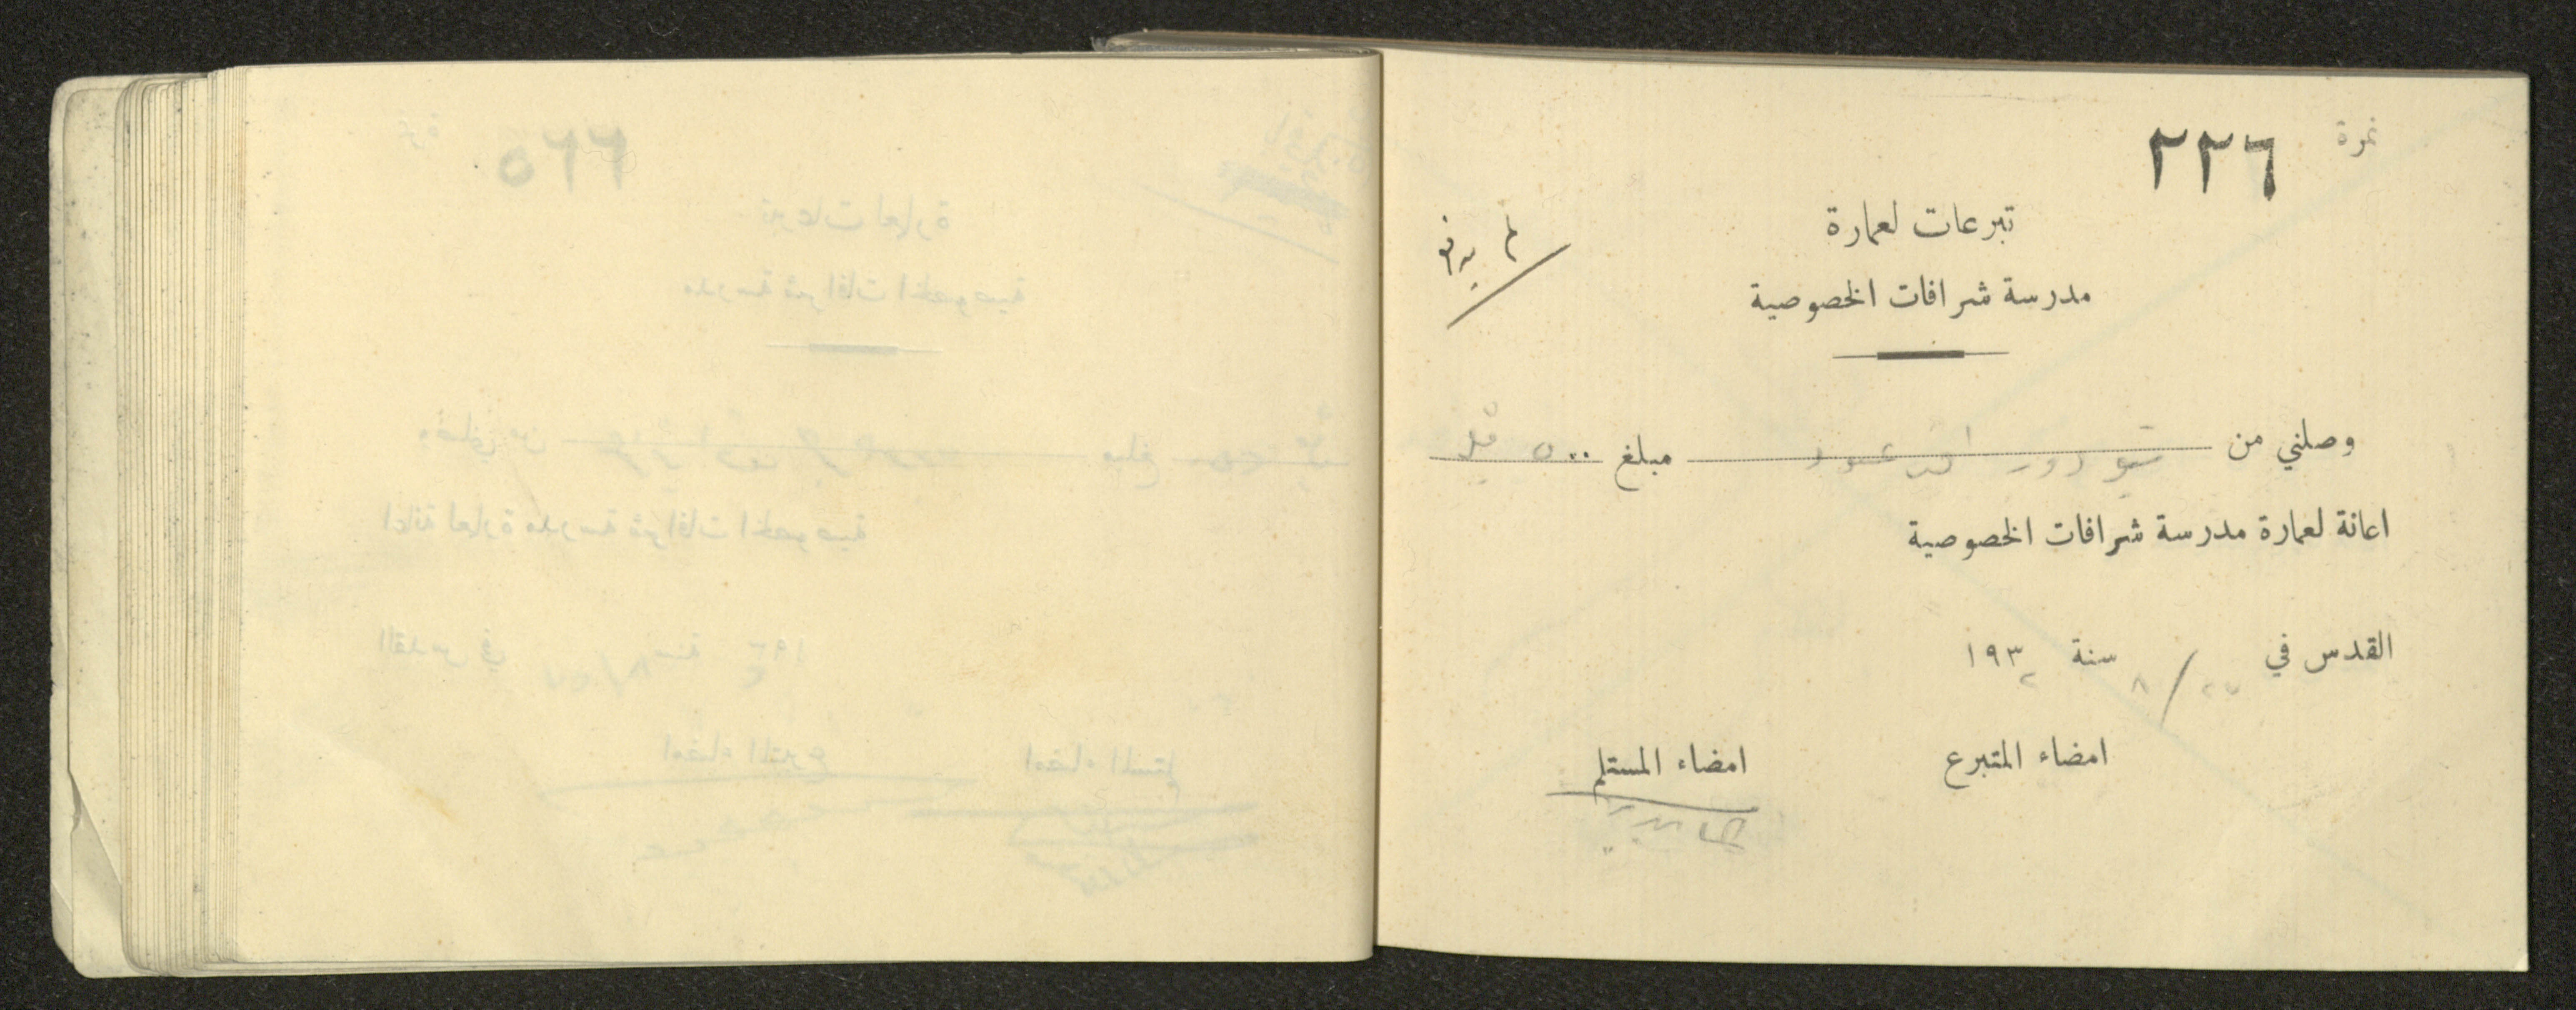 نمرة ٢٢٦
لم يدفع
تبرعات لعمارة
مدرسة شرافات الخصوصية
وصلني من تيودور مبلغ ٥٠٠ ملا
اعانة لعمارة مدرسة شرافات الخصوصية
القدس في ٢٧ / ٨ سنة ١٩٣٢
امضاء المتبرع امضاء المستلم